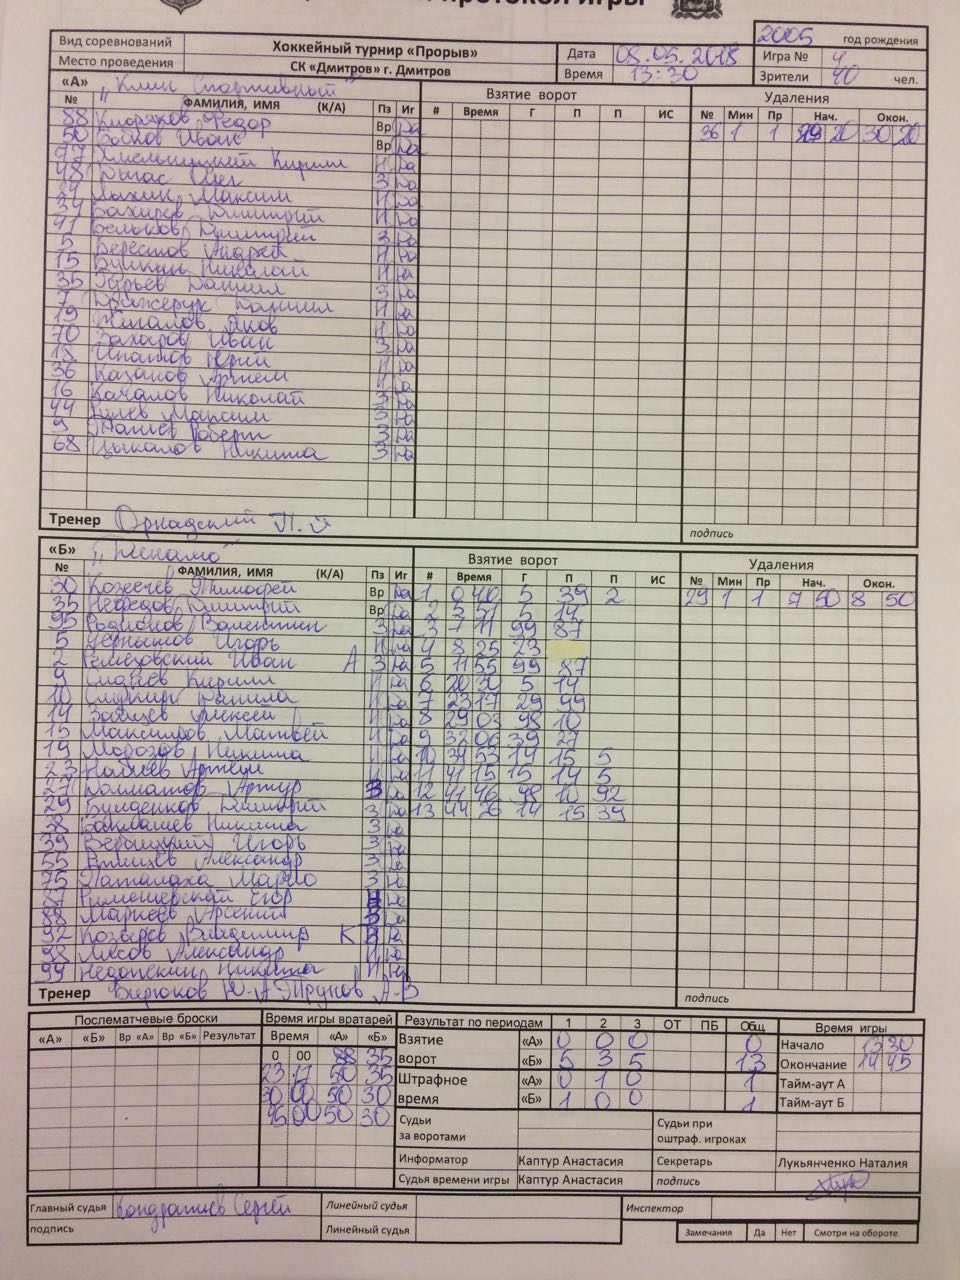 протокол игры
2005 год рождения
Вид соревнований Хоккейный турнир «Прорыв» Дата 08.05.2018 Игра № 4
Место проведения СК «Дмитров» г. Дмитров Время 13:30 Зрители 40 чел.
«А» „Клин Спортивный" Взятие ворот Удаления
№ ФАМИЛИЯ, ИМЯ (К/А) Пз Иг # Время Г П П ИС № Мин Пр Нач. Окон.
88 Федор Вр Да 36 1 1 29 20 30 20
50 Бойков Иван Вр Да
97 Хмельницкий Кирилл Н Да
48 Олег З Да
24 Максим Н Да
34 Бахирев Дмитрий Н Да
41 Бельков Дмитрий З Да
5 Берестов Андрей Н Да
15 Николай Н Да
35 Гурьев Даниил З Да
7 Даниил Н Да
19 Яков Н Да
70 Захаров Иван З Да
18 Ипатов Юрий Н Да
36 Казаков Артём Н Да
16 Качалов Николай З Да
44 Максим З Да
9 Роберт З Да
68 Цыкалов Никита З Да
Тренер П.
подпись
«Б» „Динамо" Взятие ворот Удаления
№ ФАМИЛИЯ, ИМЯ (К/А) Пз Иг # Время Г П П ИС № Мин Пр Нач. Окон.
30 Козечев Тимофей Вр Да 1 0 40 5 39 2 29 1 1 7 50 8 50
35 Нефедов Дмитрий Вр Да 2 5 51 5 14
95 Родионов Валентин З Да 3 7 11 99 87
5 Чернышов Игорь Н Да 4 8 25 23
2 Ремезовский Иван А З Да 5 11 55 99 87
9 Кирилл Н Да 6 20 30 5 14
10 Данила Н Да 7 23 17 29 99
14 Зайцев Алексей Н Да 8 29 03 98 10
15 Максимов Матвей Н Да 9 32 06 39 27
19 Морозов Никита Н Да 10 34 53 14 15 5
23 Набиев Артём Н Да 11 41 15 15 14 5
27 Долматов Артур З Да 12 41 46 98 10 92
29 Буйденков Дмитрий З Да 13 44 26 14 15 39
38 Баклашев Никита З Да
39 Вербицкий Игорь З Да
55 Александр З Да
75 Паталаха Марко З Да
87 Егор Н Да
88 Маркеев Арсений З Да
92 Козырев Владимир К Н Да
98 Лисов Александр Н Да
99 Недопекин Никита Н Да
Тренер Бирюков Ю.А Трунов А.В
подпись
Послематчевые броски Время игры вратарей Результат по периодам 1 2 3 ОТ ПБ Общ Время игры
«А» «Б» Вр «А» Вр «Б» Результат Время «А» «Б» Взятие ворот «А» 0 0 0 0 Начало 13 30
0 00 88 35 «Б» 5 3 5 13 Окончание 14 45
23 17 50 35 Штрафное время «А» 0 1 0 1 Тайм-аут А
30 00 50 30 «Б» 1 0 0 1 Тайм-аут Б
45 00 50 30 Судьи за воротами Судьи при оштраф. игроках
Информатор Каптур Анастасия Секретарь Лукьянченко Наталия
Судья времени игры Каптур Анастасия подпись
Главный судья Кондратьев Сергей Линейный судья Инспектор
подпись Линейный судья Замечания Да Нет Смотри на обороте